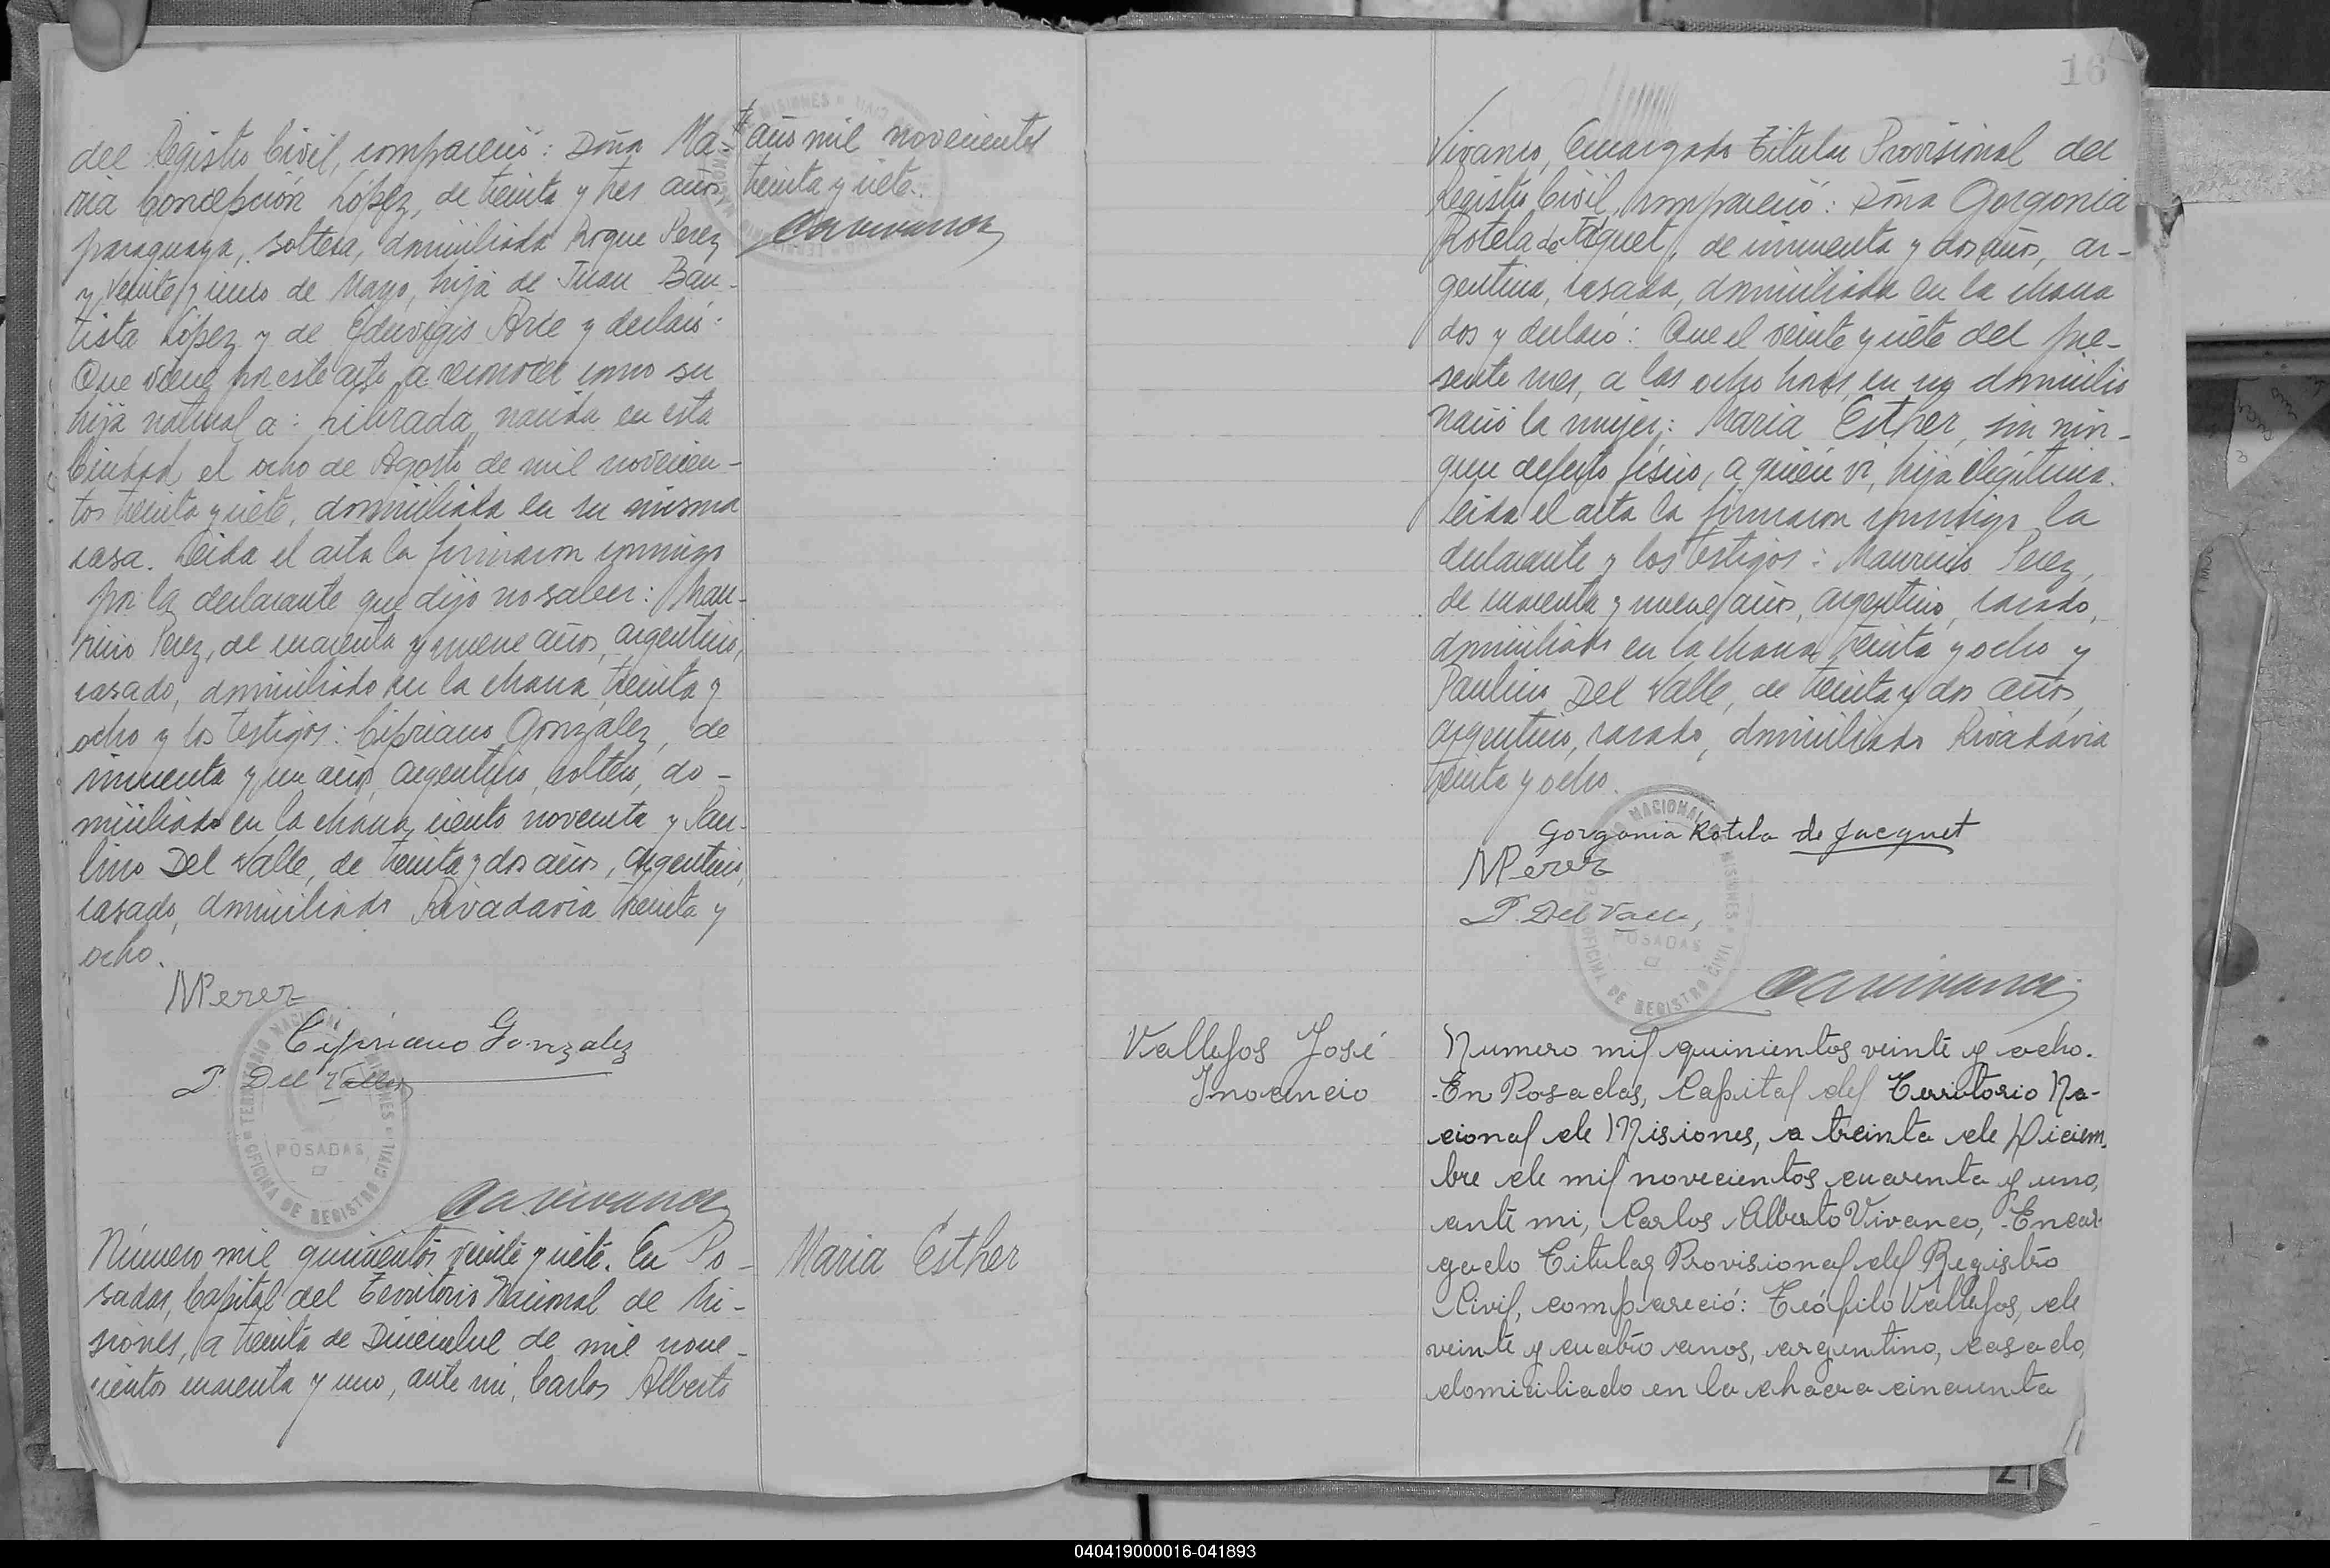 del Registro Civil, compareció: Doña Ma-
ria Concepción López, de treinta y tres años
paraguaya, soltera, domiciliada Roque Perez
y veinte y cinco de Mayo, hija de Juan Bau-
tista López y de Eduvigis Arce y declaró:
Que viene por este acto a reconocer como su
hija natural a: Librada, nacida en esta
Ciudad, el ocho de Agosto de mil novecien-
tos treinta y siete, domiciliada en su misma
casa. Leida el acta la firmaron conmigo
por la declarante que dijo no saber: Mau-
ricio Perez, de cuarenta y nueve años, argentino,
casado, domiciliado en la chacra treinta y
ocho y los testigos: Cipriano Gonzalez, de
cincuenta y un años, argentino, soltero, do-
miciliado en la chacra ciento noventa y Pau-
lino Del Valle, de treinta y dos años, argentino,
casado, domiciliado Rivadavia treinta y
ocho.
MPerez
Cipriano Gonzalez
P. Del Valle
TERRITORIO NACIONAL MISIONES
POSADAS
OFICINA DE REGISTRO CIVIL
CAVivanco
Número mil quinientos veinte y siete. En Po-
sadas, Capital del Territorio Nacional de Mi-
siones, a treinta de Diciembre de mil nove-
cientos cuarenta y uno, ante mi, Carlos Alberto
años mil novecientos
treinta y siete.
CAVivanco
Maria Esther
16
Vivanco, Encargado Titular Provisional del
Registro Civil, compareció: Doña Gorgonia
Rotela de Jaquet, de cincuenta y dos años, ar-
gentina, casada, domiciliada en la chacra
dos y declaró: Que el veinte y siete del pre-
sente mes, a las ocho horas, en su domicilio
nació la mujer: Maria Esther, sin nin-
gun defecto físico, a quien vi, hija ilegítima.
Leida el acta la firmaron conmigo la
declarante y los testigos: Mauricio Perez,
de cuarenta y nueve años, argentino, casado,
domiciliado en la chacra treinta y ocho y
Paulino Del Valle, de treinta y dos años,
argentino, casado, domiciliado Rivadavia
treinta y ocho.
Gorgonia Rotela de Jacquet
MPerez
P. Del Valle,
NACIONAL MISIONES
POSADAS
OFICINA DE REGISTRO CIVIL
CAVivanco
Vallejos José
Inocencio
Numero mil quinientos veinte y ocho.
En Posadas, Capital del Territorio Na-
cional de Misiones, a treinta de Diciem-
bre de mil novecientos cuarenta y uno,
ante mi, Carlos Alberto Vivanco, Encar-
gado Titular Provisional del Registro
Civil, compareció: Teófilo Vallejos, de
veinte y cuatro anos, argentino, casado,
domiciliado en la chacra cincuenta
040419000016-041893